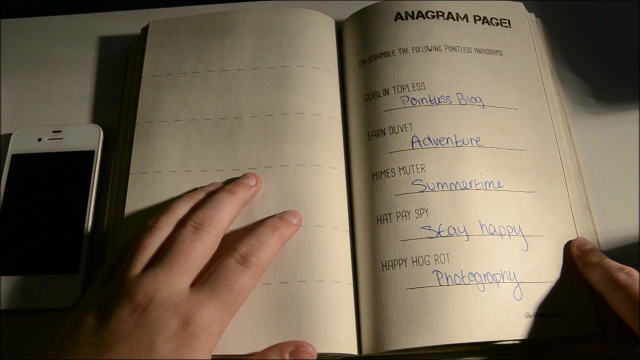 ANAGRAM PAGE!
UNSCRAMBLE THE FOLLOWING POINTLESS ANAGRAMS
GOBLIN TOPLESS
Pointless Blog
EARN DUVET
Adventure
MIMES MUTER
Summertime
HAT PAY SPY
Stay happy
HAPPY HOG ROT
Photography